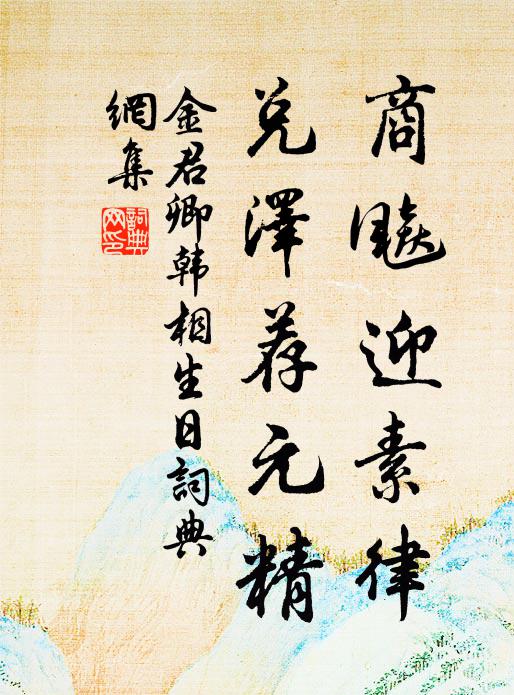 商飈迎素律
兑澤荐元精
金君卿韩相生日詞典
網集
詞典
网印